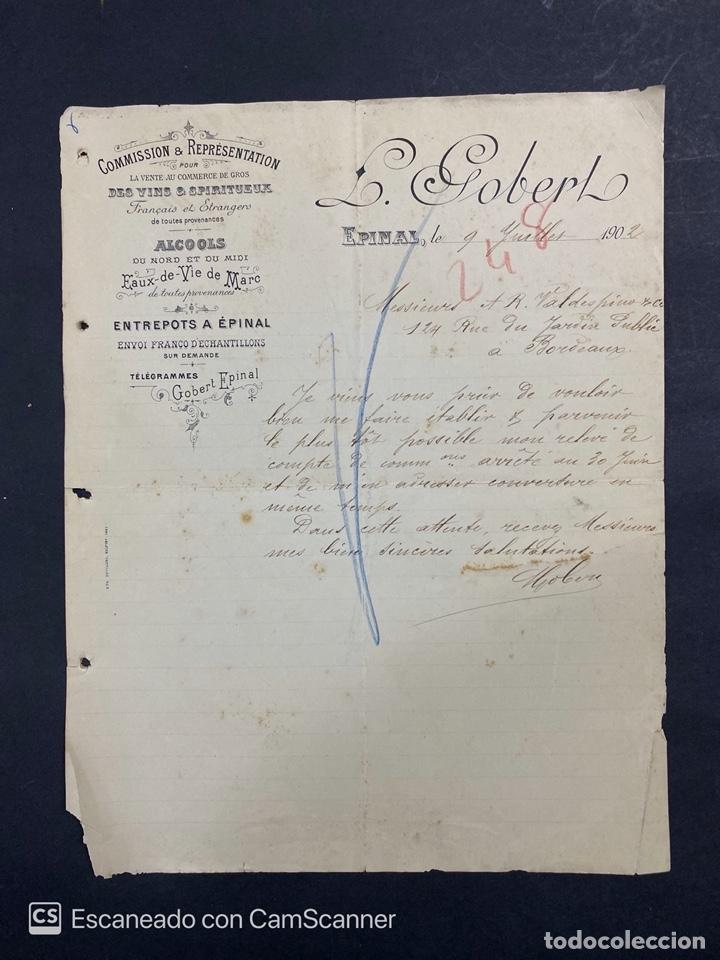 COMMISSION & REPRÉSENTATION
POUR
LA VENTE AU COMMERCE DE GROS
DES VINS & SPIRITUEUX
Français et Etrangers
de toutes provenances
ALCOOLS
DU NORD ET DU MIDI
Eaux-de-Vie de Marc
de toutes provenances
ENTREPOTS A ÉPINAL
ENVOI FRANCO D'ECHANTILLONS
SUR DEMANDE
TÉLÉGRAMMES
Gobert Epinal
L. Gobert
EPINAL, le 9 Juillet 1902
248
Messieurs A R. Valdespino & Cie
124 Rue du Jardin Public
à Bordeaux
Je viens vous prier de vouloir
bien me faire établir & parvenir
le plus tôt possible mon relevé de
compte de commons arrêté au 30 Juin
et de m'en adresser couverture en
même temps.
Dans cette attente, recevez Messieurs
mes bien sincères salutations.
CS Escaneado con CamScanner
todocoleccion